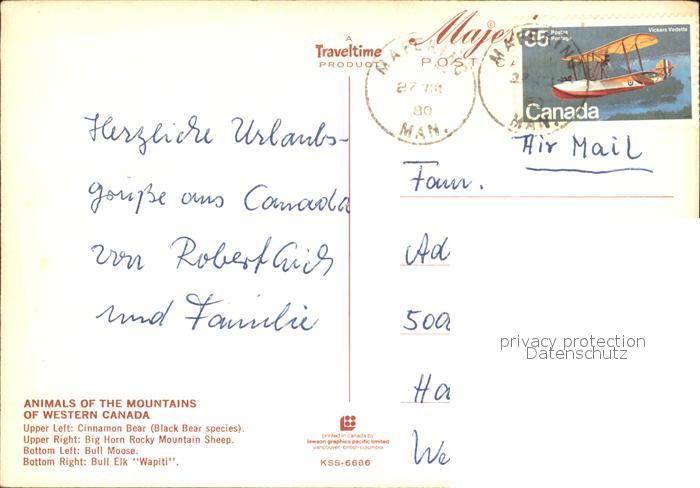 A
Traveltime
PRODUCT
POST
MAN.
27 VIII
80
MAN.
35
Postes
Vickers Vedette
Canada
Air Mail
Herzliche Urlaubs-
grüße aus Canada
von Robert
und Familie
Fam.
Ad
500
Ha
We
privacy protection
Datenschutz
ANIMALS OF THE MOUNTAINS
OF WESTERN CANADA
Upper Left: Cinnamon Bear (Black Bear species).
Upper Right: Big Horn Rocky Mountain Sheep.
Bottom Left: Bull Moose.
Bottom Right: Bull Elk "Wapiti".
printed in canada by
lawson graphics pacific limited
vancouver, british columbia
KSS-6686